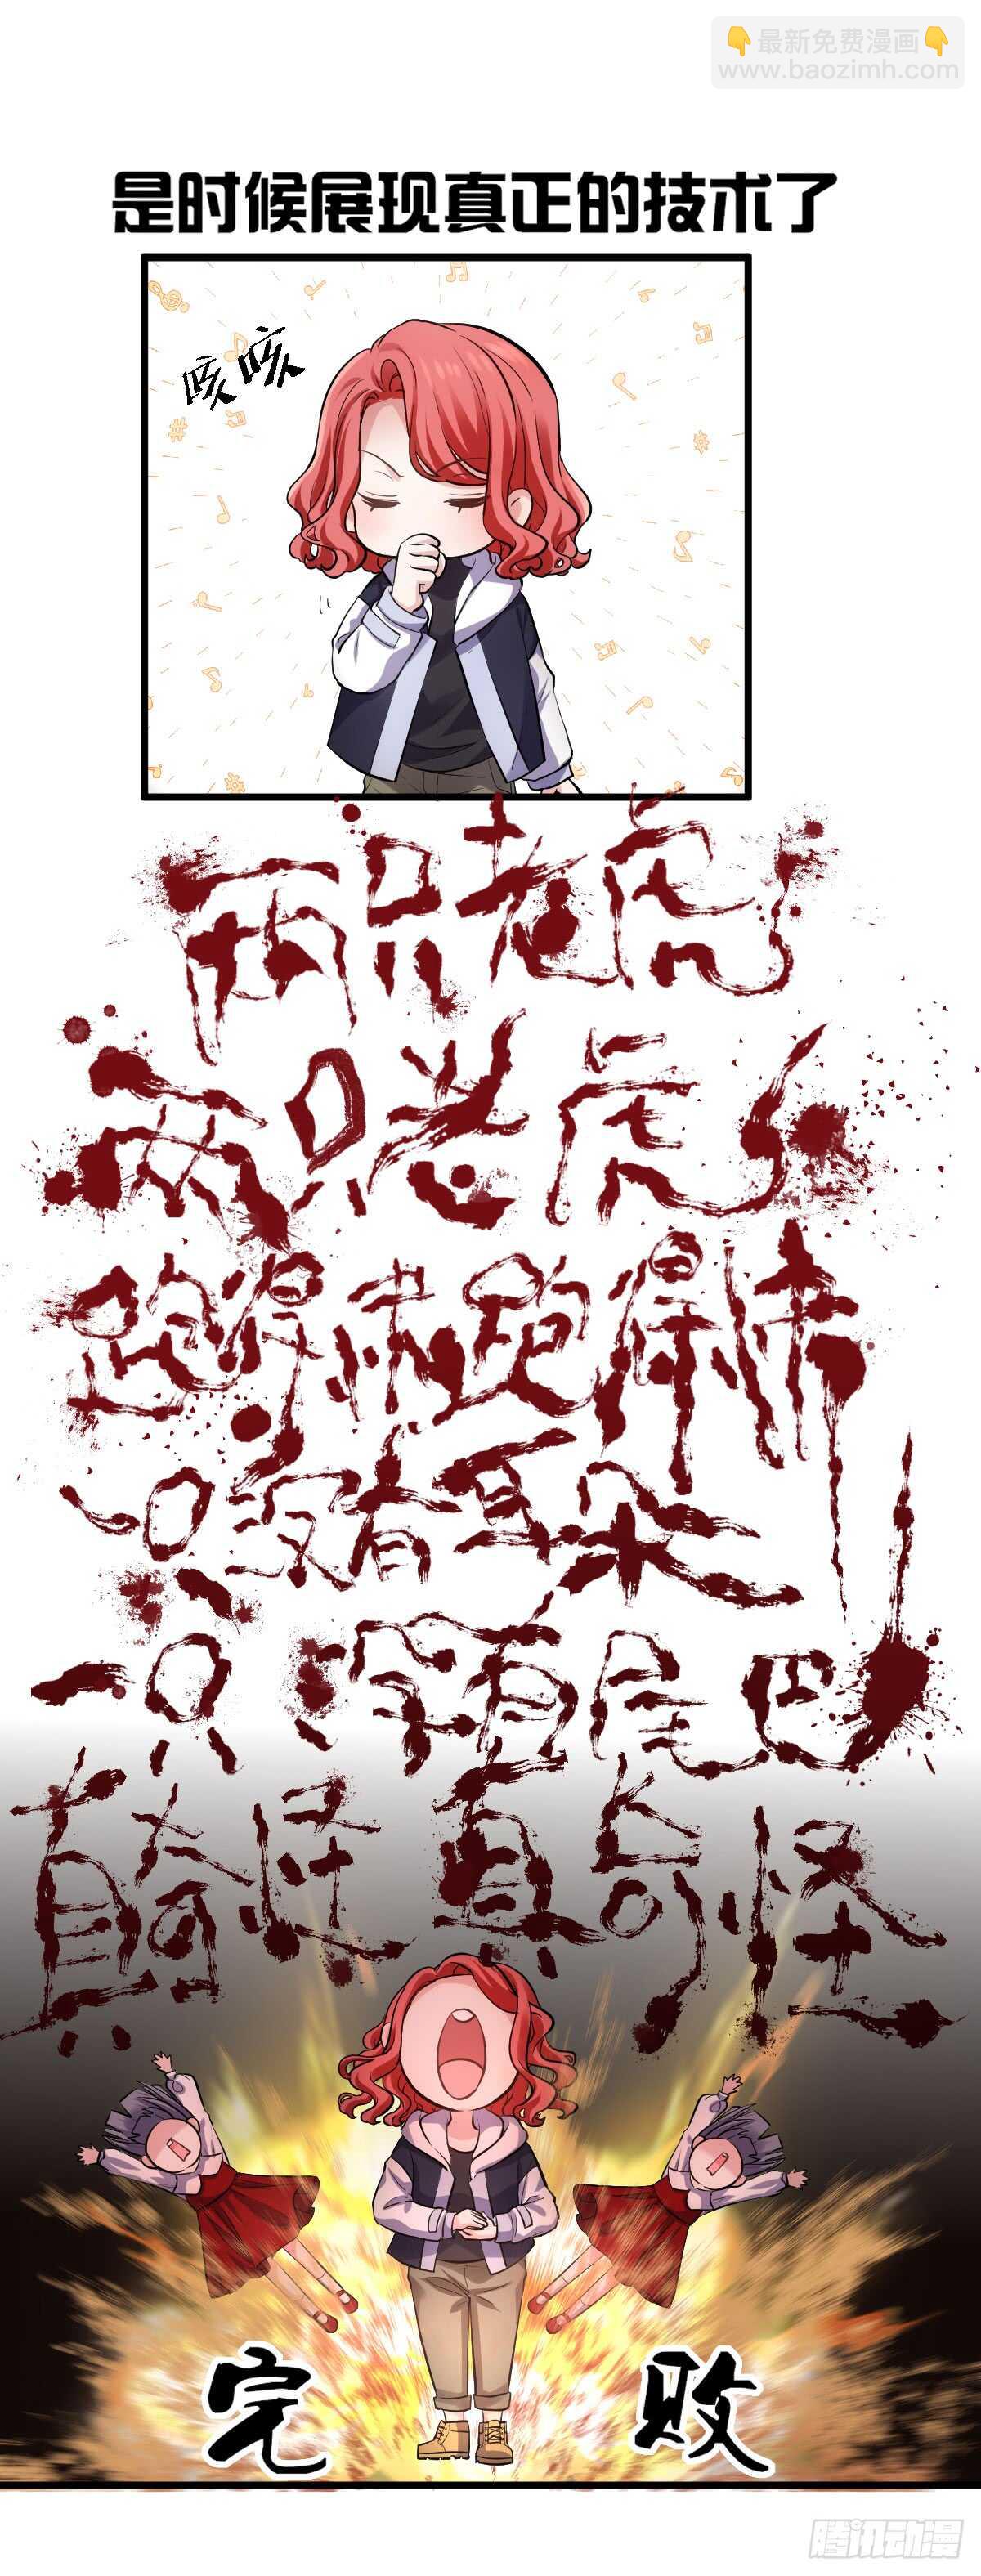 👇最新免费漫画👇
www.baozimh.com
是时候展现真正的技术了
咳咳
两只老虎
两只老虎
跑得快跑得快
一只没有耳朵
一只没有尾巴
真奇怪 真奇怪
完 败
腾讯动漫